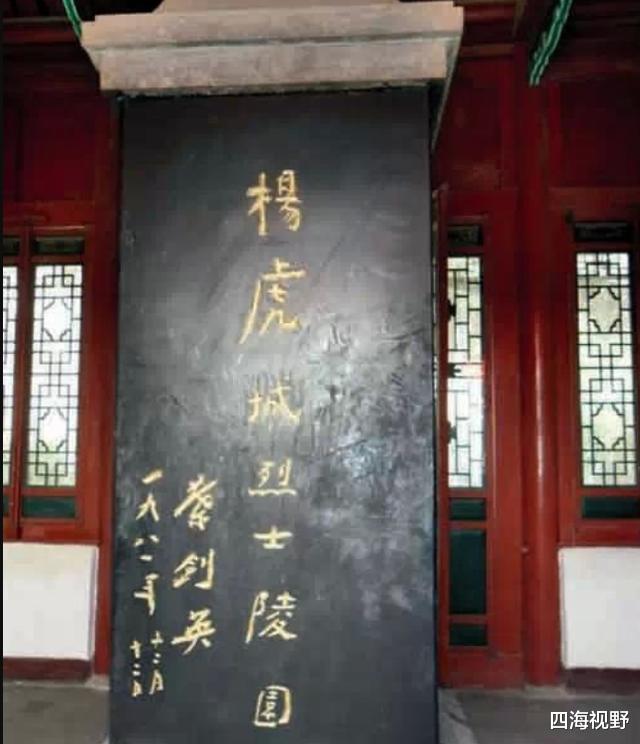 楊虎城烈士陵園
葉剑英
一九八一年十二月
十二日
四海视野